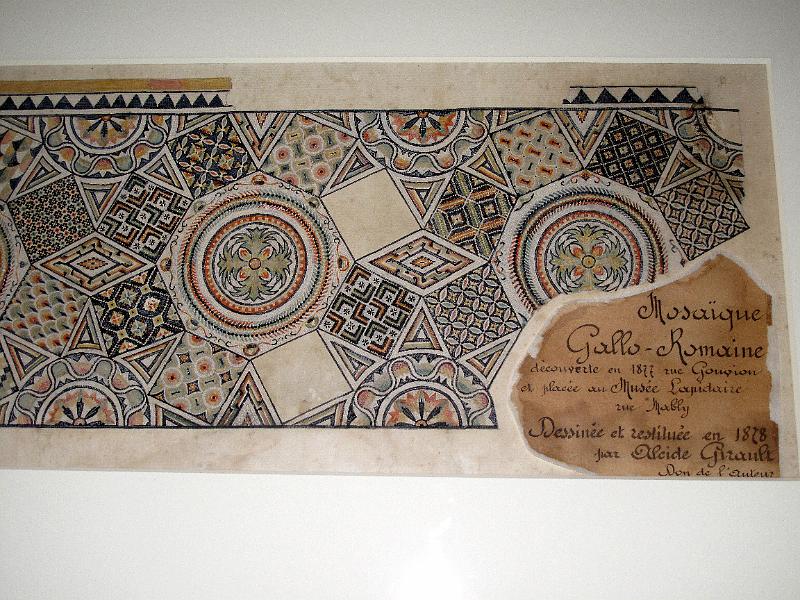 Mosaïque
Gallo-Romaine
découverte en 1877 rue Gouvion
et placée au Musée Lapidaire
rue Mably
Dessinée et restituée en 1878
par Alcide Girault
Don de l'Auteur